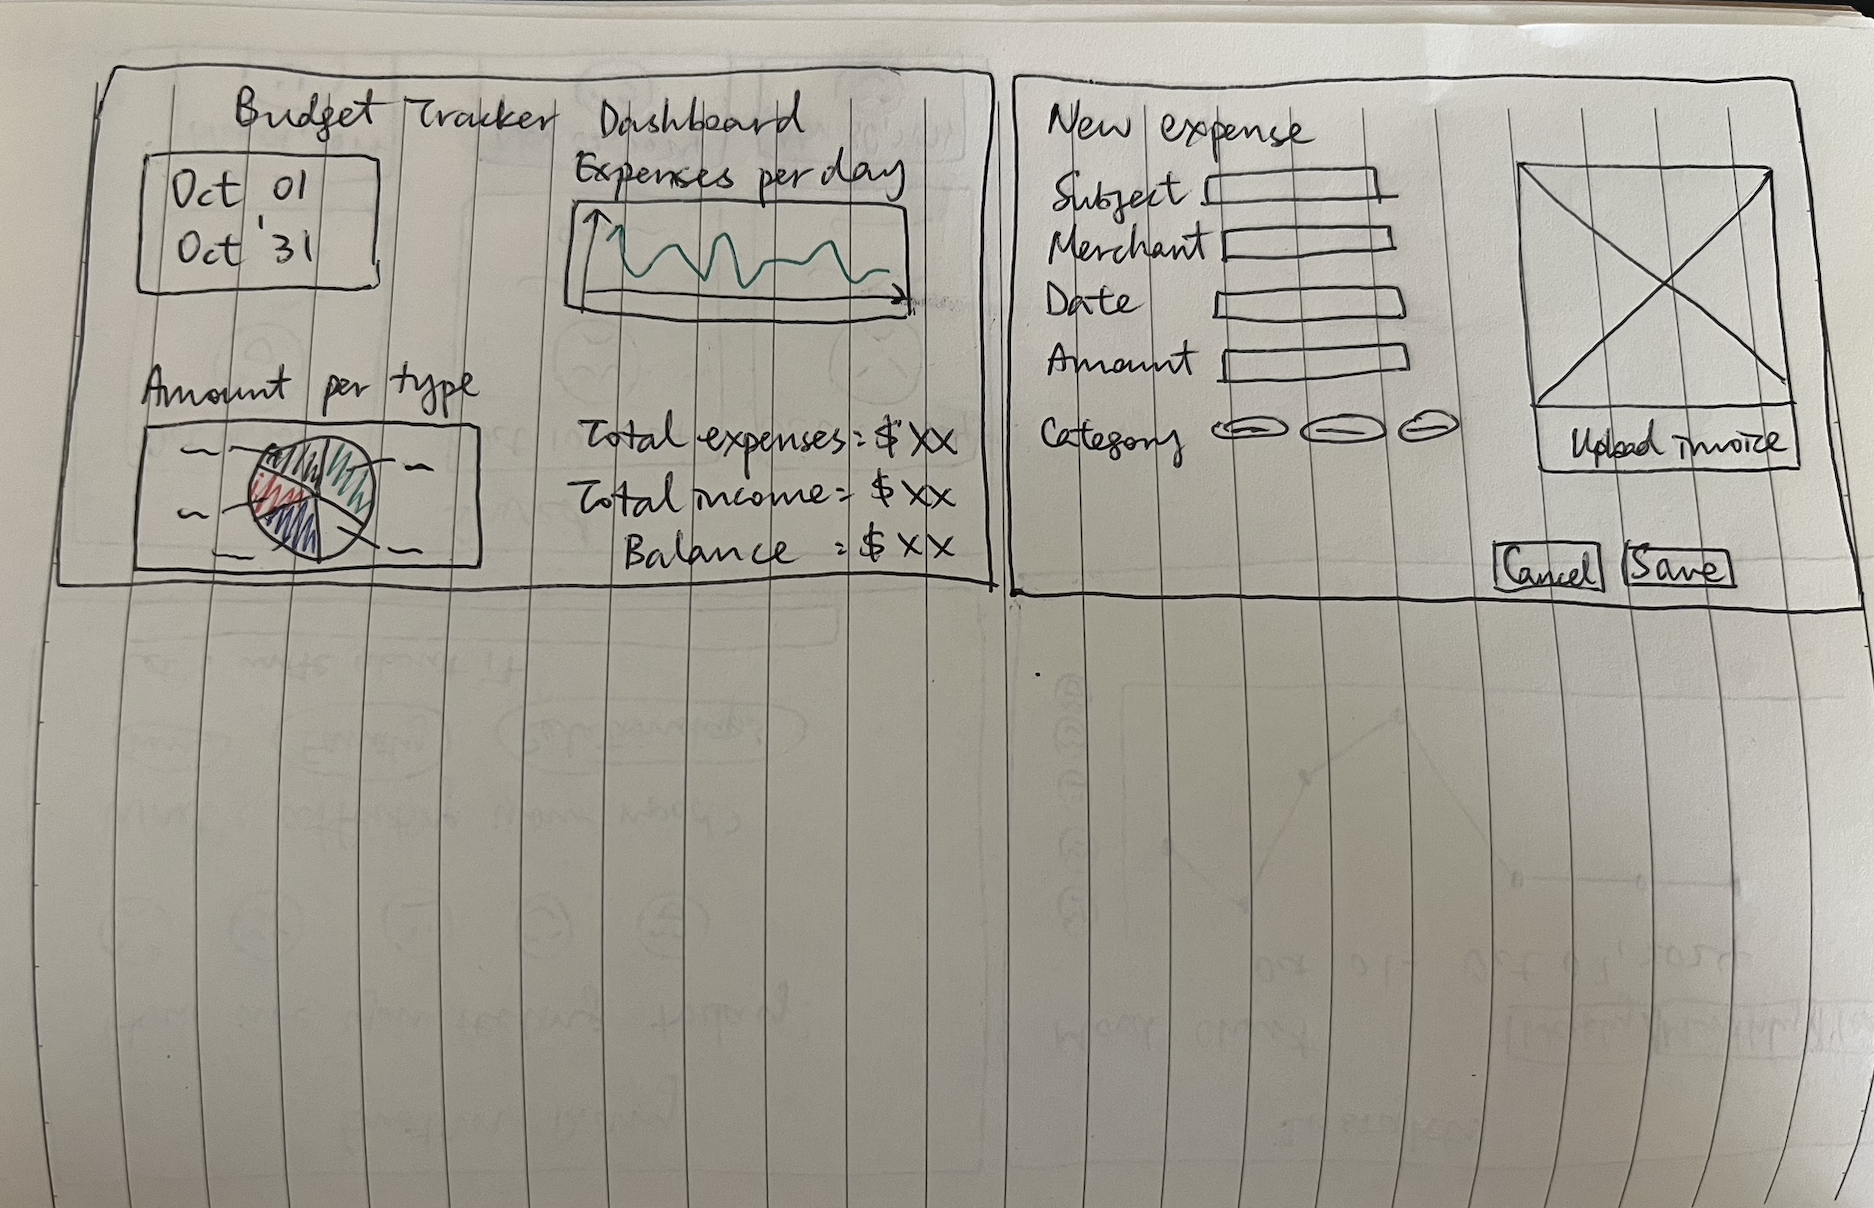 Budget Tracker Dashboard
Oct 01
Oct '31
Expenses per day
Amount per type
Total expenses = $ XX
Total income = $ XX
Balance = $ XX
New expense
Subject
Merchant
Date
Amount
Category
Upload invoice
Cancel
Save